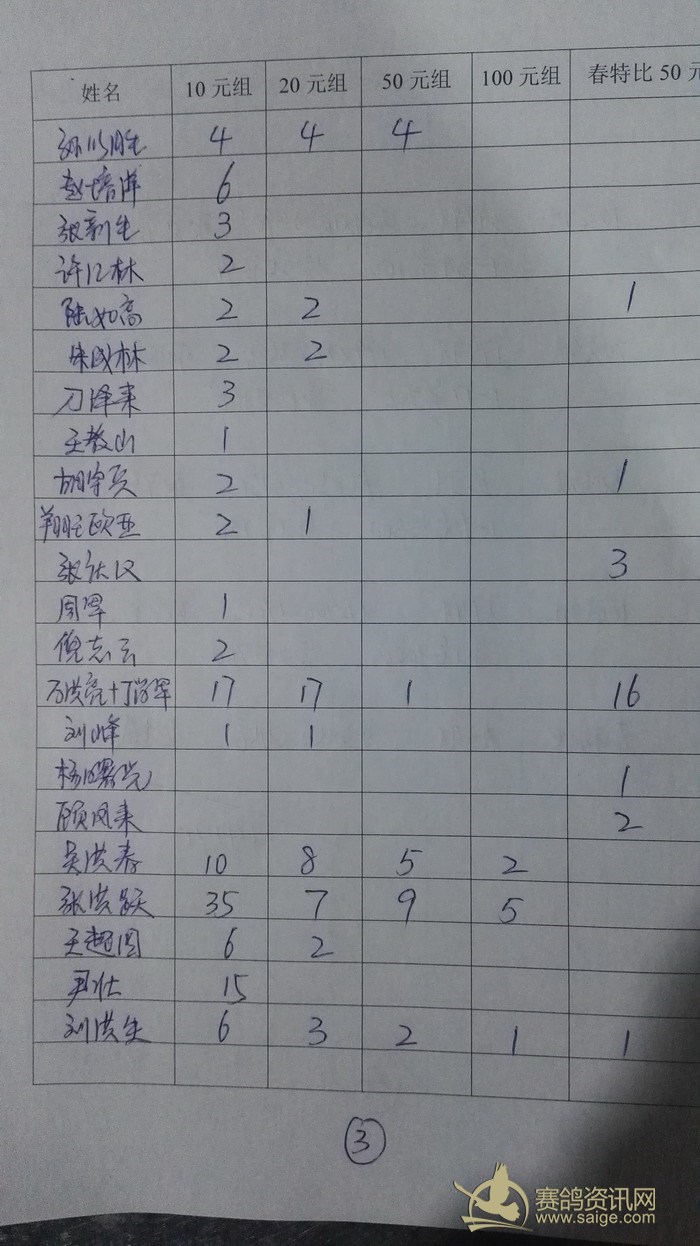 姓名 10 元组 20 元组 50 元组 100 元组 春特比 50 元
孙以胜 4 4 4
赵培洋 6
张新生 3
许仁林 2
陆如高 2 2 1
朱成林 2 2
刁泽来 3
王教山 1
胡学兵 2 1
翔旺欧亚 2 1
张 3
周军 1
倪志云 2
万洪亮+丁学军 17 17 1 16
刘峰 1 1
杨曙光 1
顾凤来 2
吴洪春 10 8 5 2
张洪跃 35 7 9 5
王超国 6 2
尹壮 15
刘洪生 6 3 2 1 1
3
赛鸽资讯网
www.saige.com